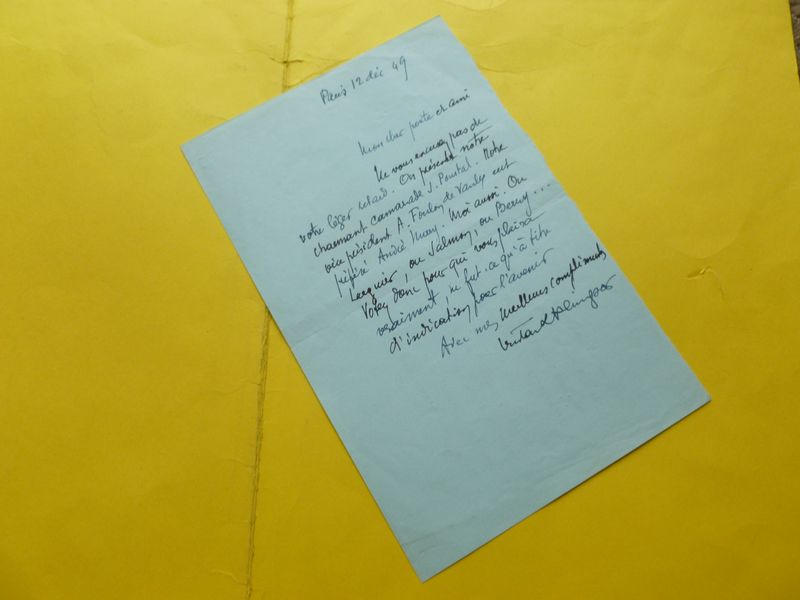 Paris 12 déc 49
Mon cher poète et ami
Ne vous excusez pas de
votre léger retard. On présenta notre
charmant camarade J. Pourtal. Notre
vice président A. Foulon de Vaulx eut
préféré André Mary. Moi aussi. Ou
ou Salmon, ou Berry...
Votez donc pour qui vous plaira
vraiment, ne fut-ce qu'à titre
d'indication pour l'avenir
Avec mes meilleurs compliments